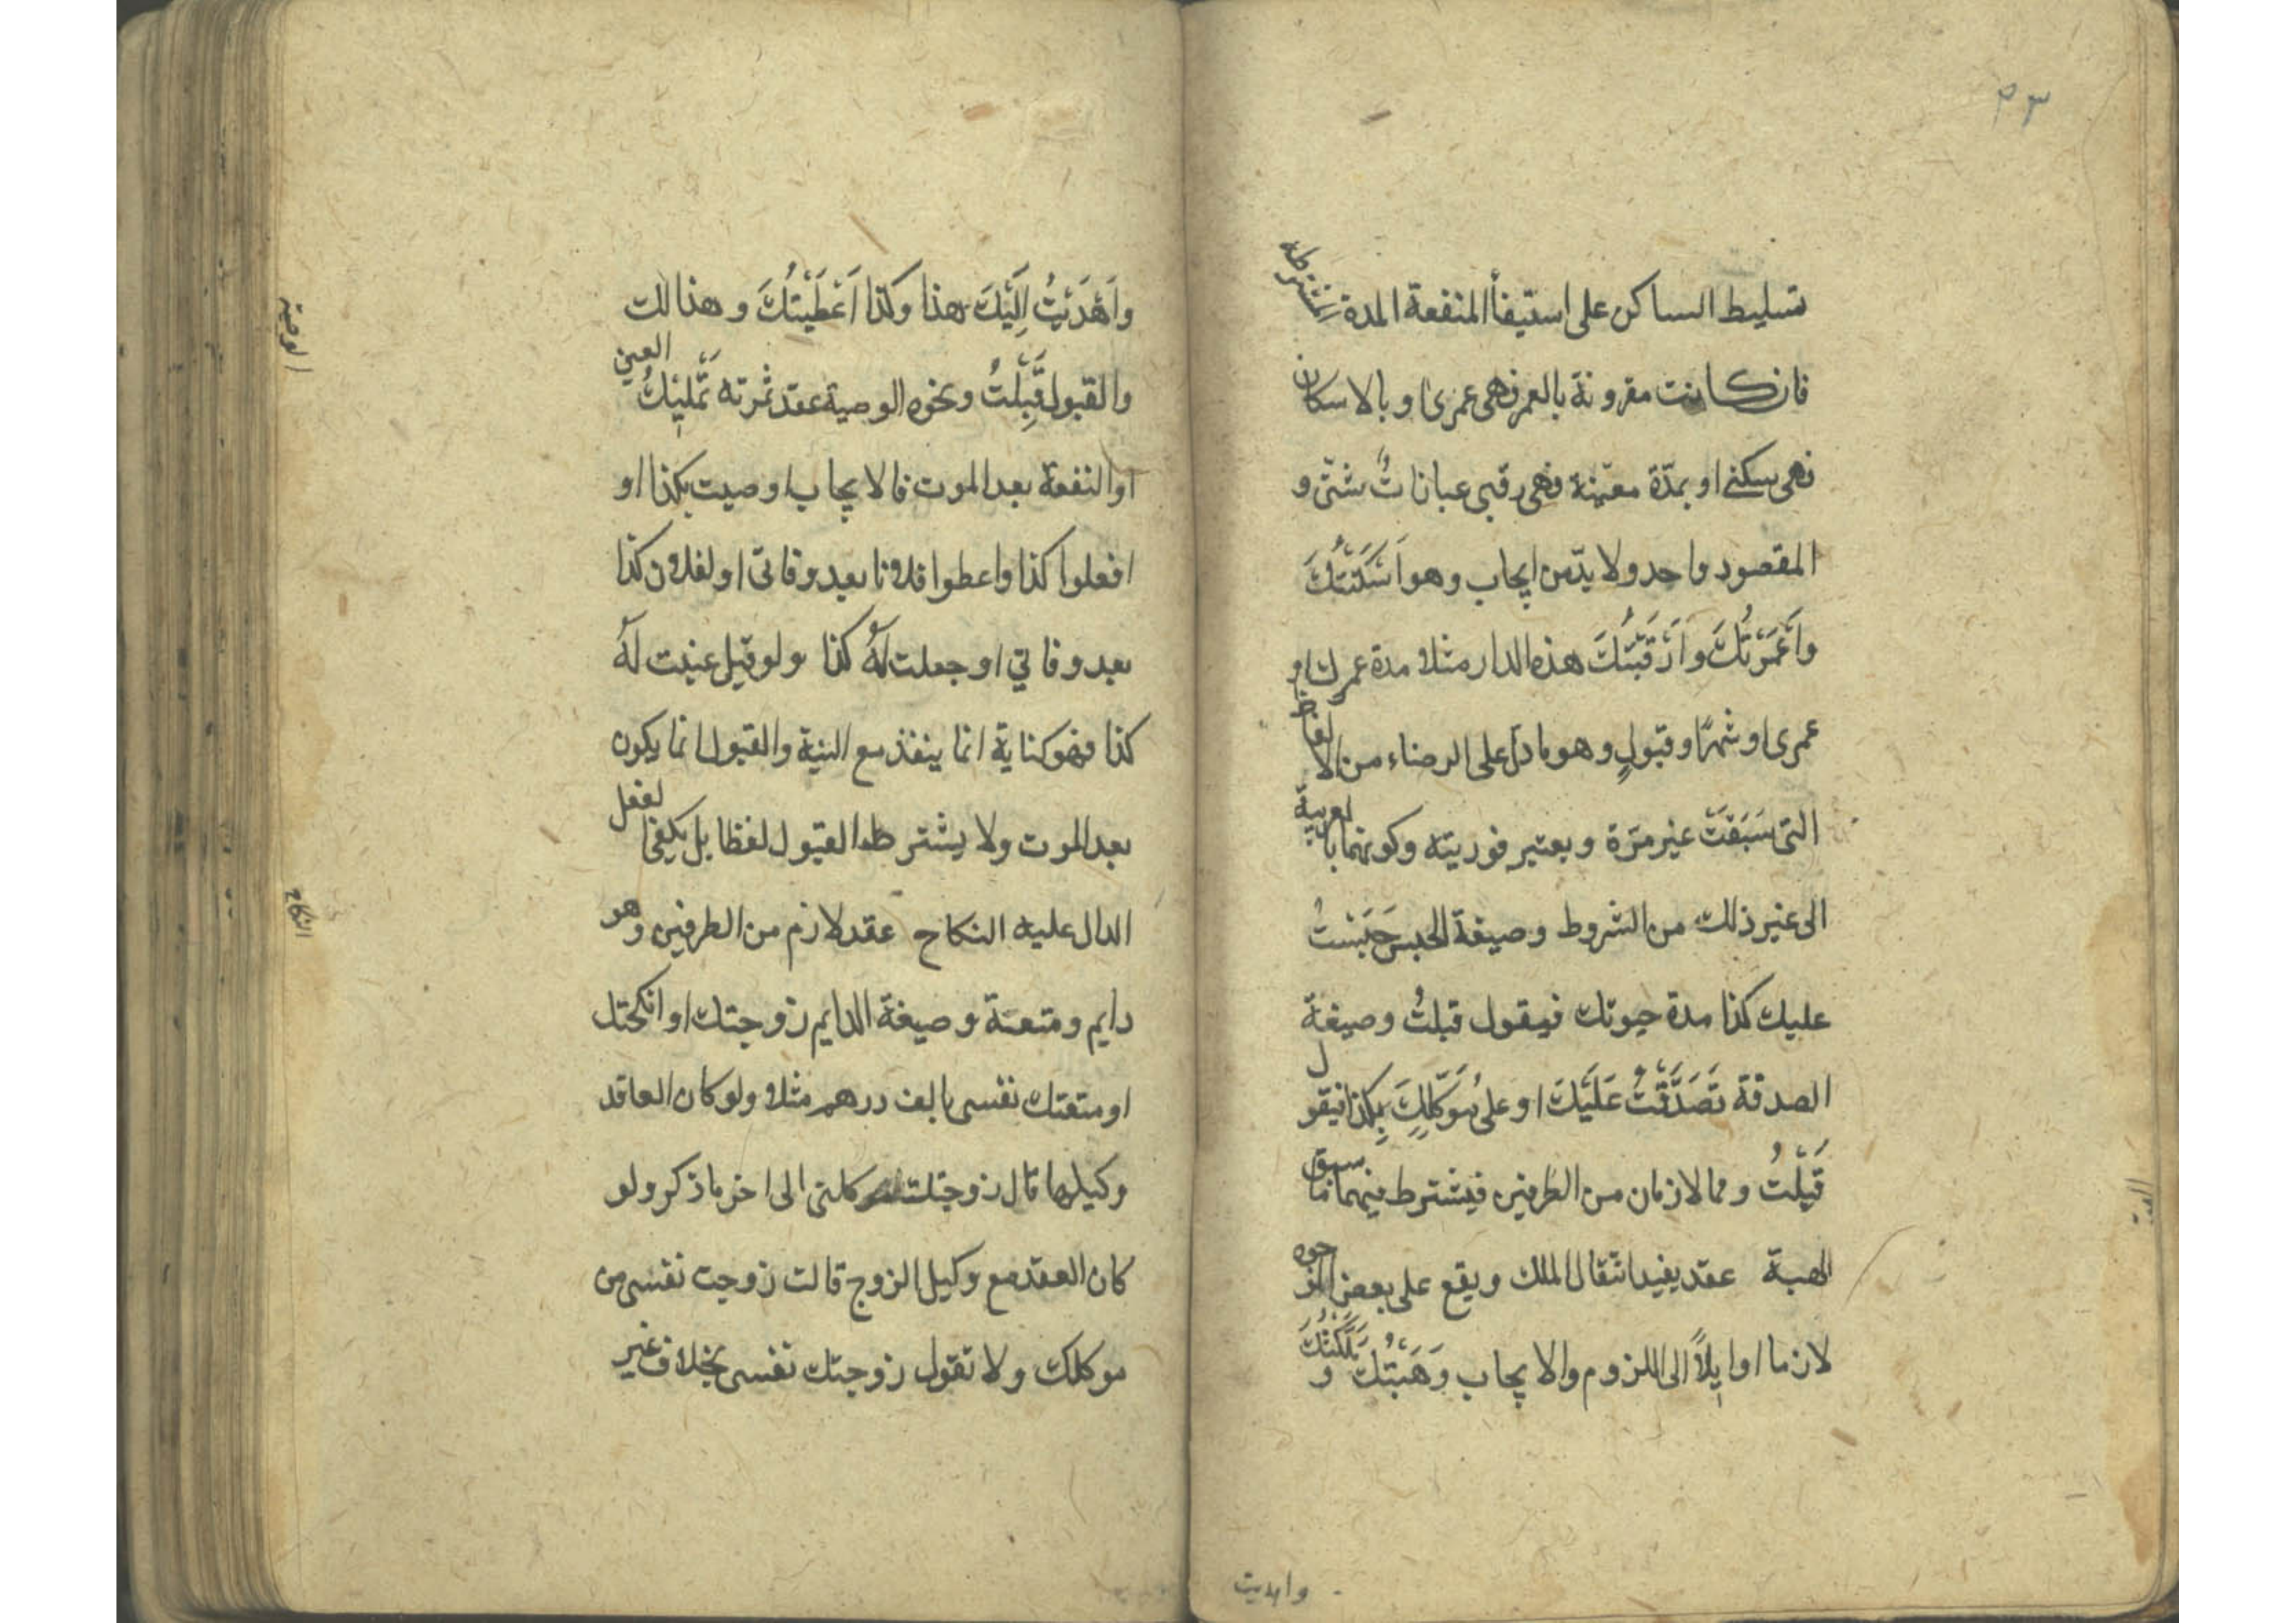 ٤٣
تسليط الساكن على استيفأ المنفعة المدة المشترطة
فان كانت مقرونة بالعمر فهى عمرى او بالاسكان
فهى سكنى او بمدّة معيّنة فهى رقبى عباراتٌ شتّى و
المقصود واحد ولا بدّ من ايجاب وهو اَسْكَنْتُكَ
واَعْمَرْتُكَ واَرْقَبْتُكَ هذه الدار مثلا مدة عمرك او
عمرى او شهرًا وقبولٍ وهو ما دلّ على الرضاء من الالفاظ
التى سَبَقَتْ غير مرّة ويعتبر فوريته وكونهما بالعربية
الى غير ذلك من الشروط وصيغة الحبس حَبَسْتُ
عليك كذا مدة حيوتك فيقول قبلتُ وصيغة
الصدقة تَصَدَّقْتُ عَلَيْكَ او على مُوَكِّلِكَ بِكذا فيقول
قَبِلْتُ وهما لازمان من الطرفين فيشترط فيهما ما سبق
الهبة عقد يفيد انتقال الملك ويقع على بعض الوجوه
لازما او ايلاً الى اللزوم والايجاب وَهَبْتُكَ و مَلَّكْتُكَ
الهبة
واهديت
واَهْدَيْتُ اِلَيْكَ هذا وكذا اَعْطَيْتُكَ وهذا لك
والقبول قَبِلْتُ ونحوه الوصية عقد ثمرته تَمْلِيْكُ العين
او المنفعة بعد الموت فالايجاب اوصيت بكذا او
افعلوا كذا واعطوا فلانا بعد وفاتى او لفلان كذا
بعد وفاتي او جعلت لَهُ كذا ولو قيل عينت لَهُ
كذا فهو كناية انما ينفذ مع النية والقبول انما يكون
بعد الموت ولا يشترط القبول لفظا بل يكفى الفعل
الدال عليه النكاح عقد لازم من الطرفين وهو
دايم ومتعة وصيغة الدايم زوجتك او انكحتك
او متعتك نفسى بالف درهم مثلا ولو كان العاقد
وكيلها قال زوجتك موكلتى الى اخر ما ذكر ولو
كان العقد مع وكيل الزوج قالت زوجت نفسى من
موكلك ولا تقول زوجتك نفسى بخلاف غير
الوصية
النكاح